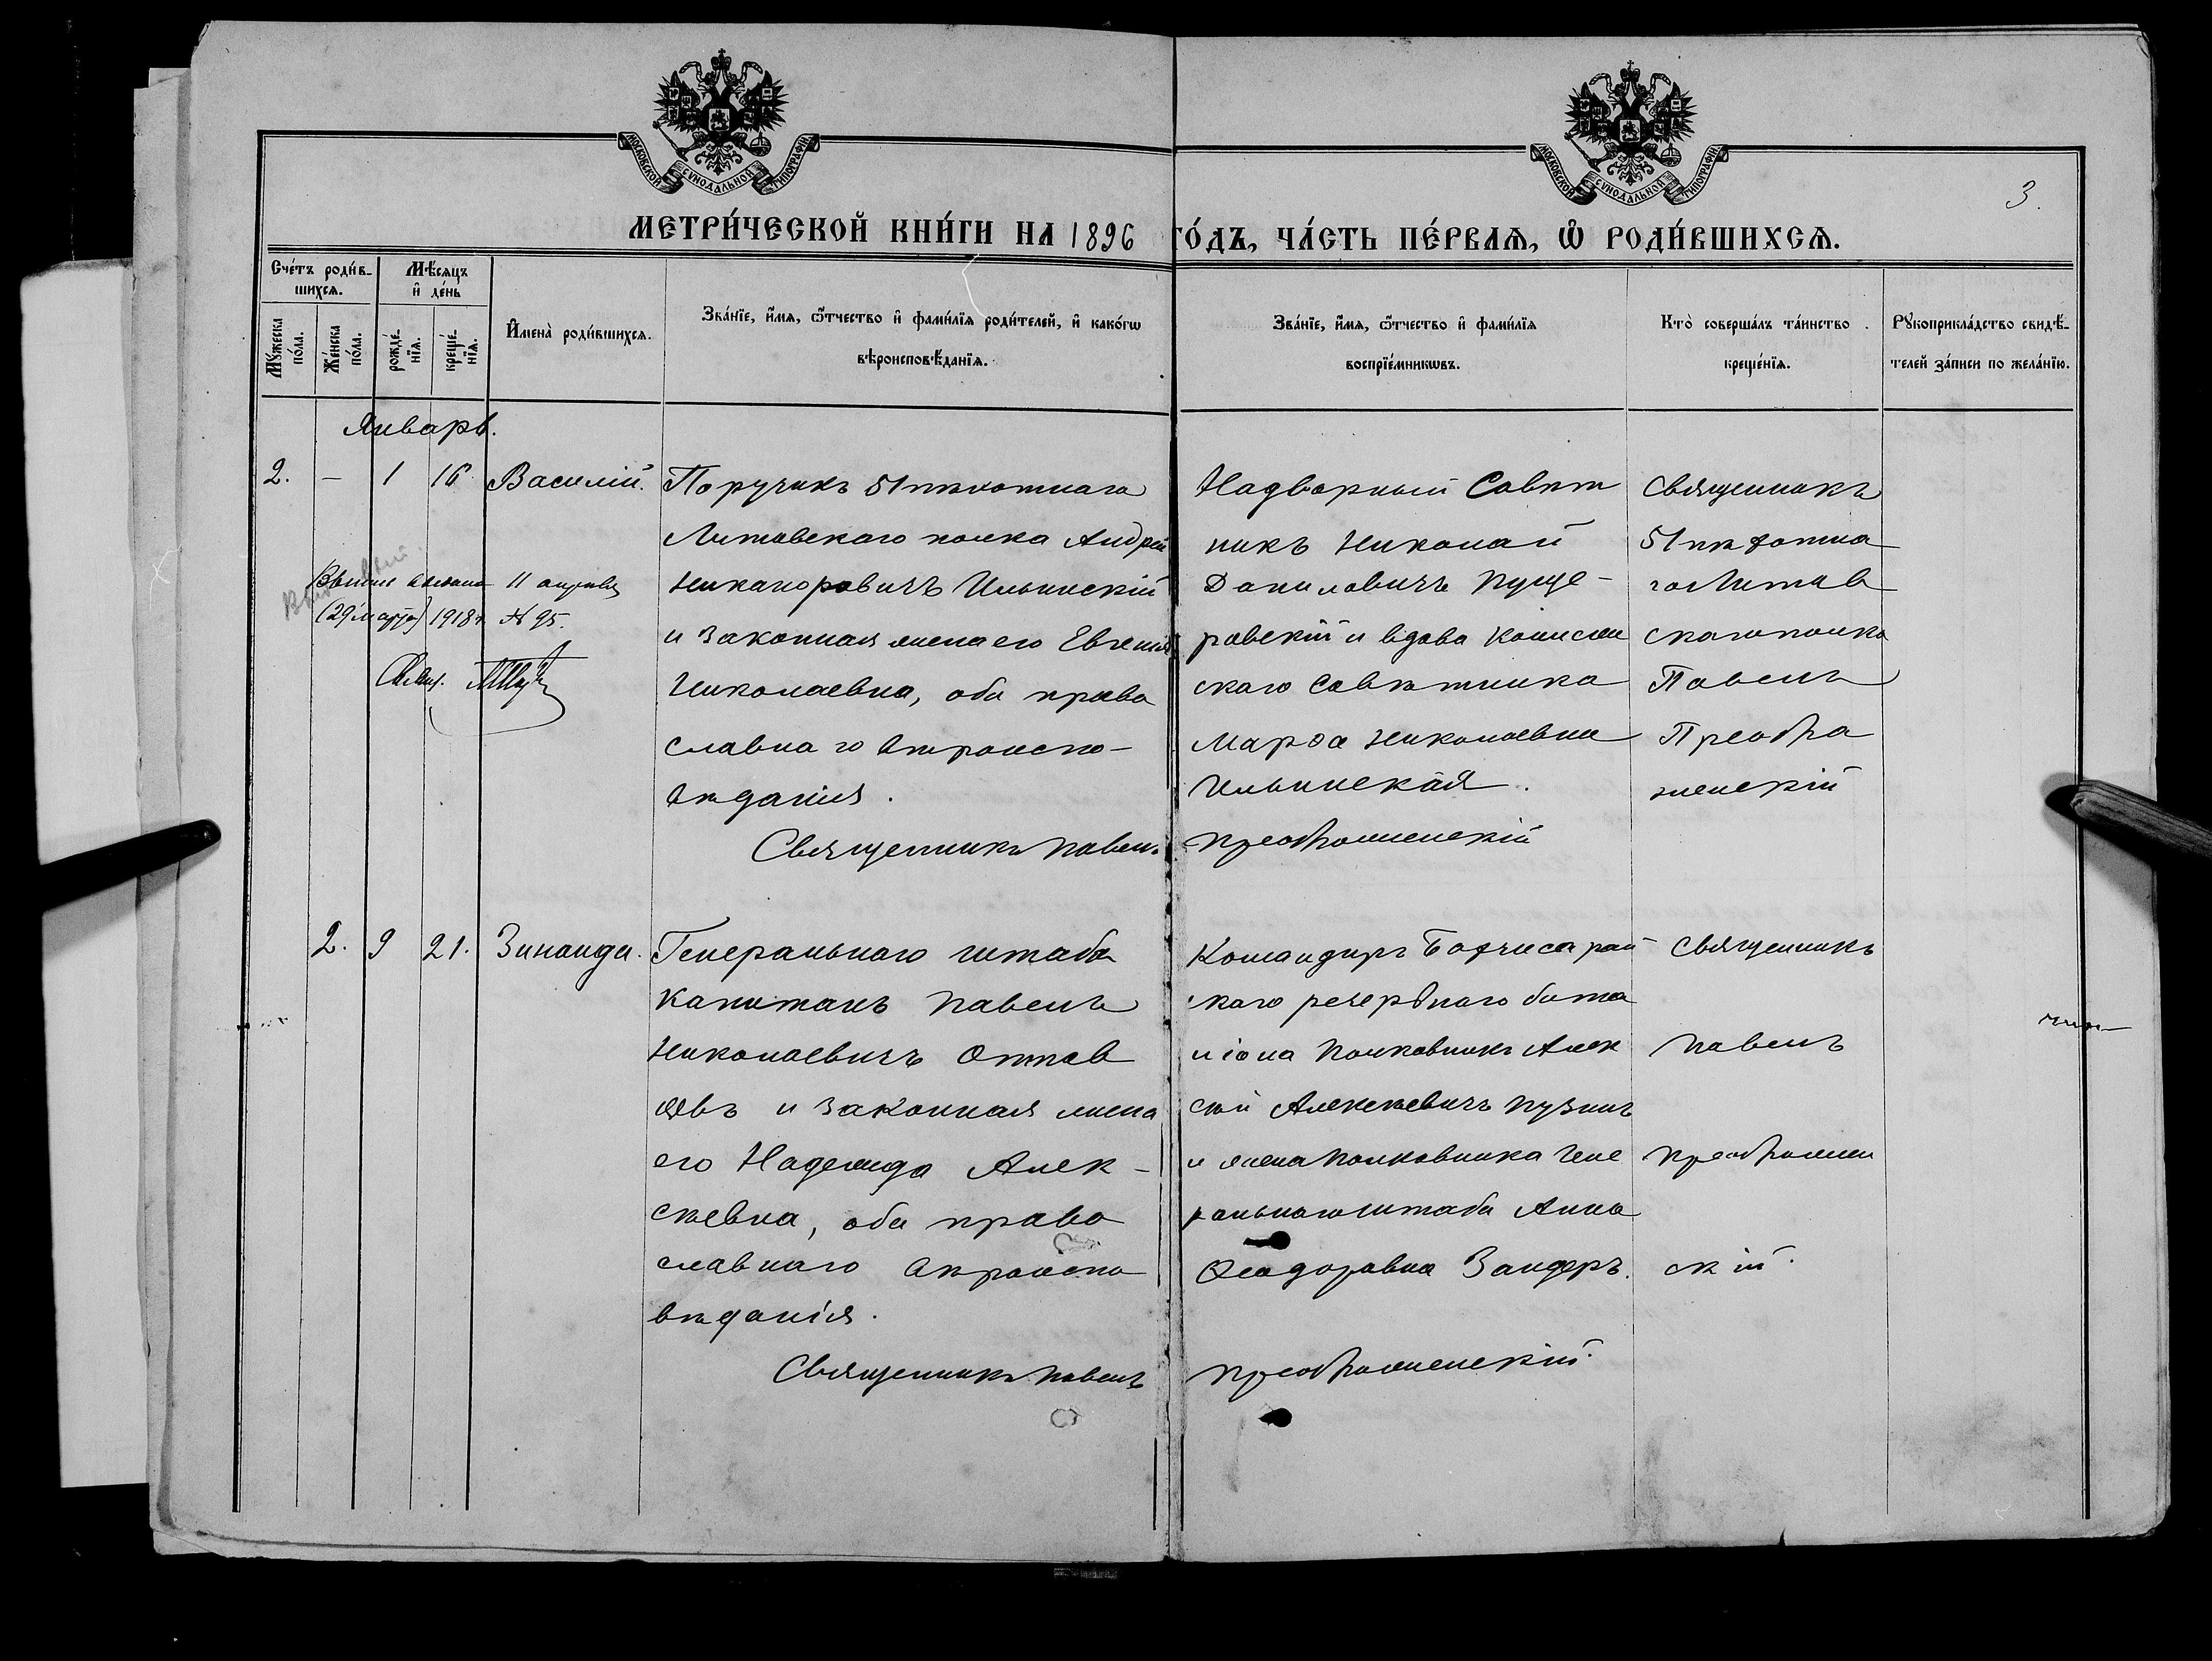 МОСКОВСКОЙ СУНОДАЛЬНОЙ ТИПОГРАФІИ
МОСКОВСКОЙ СУНОДАЛЬНОЙ ТИПОГРАФІИ
3.
МЕТРИ́ЧЕСКОЙ КНИ́ГИ НА 1896 ГО́ДЪ, ЧА́СТЬ ПЕ́РВАЯ, Ѡ҆ РОДИ́ВШИХСЯ.
Сче́тъ роди́в-
шихся.
Мѣ́сяцъ
и҆ де́нь
Мꙋ́жеска
по́ла.
Же́нска
по́ла.
рожде́-
нїя.
креще́-
нїя.
И҆мена̀ роди́вшихся.
Зва́нїе, и҆́мя, ѻ҆́тчество и҆ фами́лїя роди́телей, и҆ како́гѡ
вѣроисповѣ́данїя.
Зва́нїе, и҆́мя, ѻ҆́тчество и҆ фами́лїя
воспрїе́мникѡвъ.
Кто̀ соверша́лъ та́инство
креще́нїя.
Рꙋкоприкла́дство свидѣ́-
телей за́писи по жела́нїю.
Январь.
2. – 1 16 Василій.
Поручикъ 51 пѣхотнаго
Литовскаго полка Андрей
Никаноровичъ Ильинскій
и законная жена его Евгенія
Николаевна, оба право
славнаго вѣроиспо-
вѣданія.
Надворный Совѣт
никъ Николай
Даниловичъ Пуще-
ровскій и вдова Колисш
скаго Совѣтника
Марѳа Николаевна
Ильинская.
Священникъ
51 пѣхотна
го Литов
скаго полка
Павелъ
Преобра
женскій
11 апрѣля
(29 марта) 1918 г. № 95.
Свящ.
Священникъ Павелъ Преображенскій
2. 9 21. Зинаида.
Генеральнаго штаба
Капитанъ Павелъ
Николаевичъ
и законная жена
его Надежда Алек-
сѣевна, оба право
славнаго вѣроиспо
вѣданія.
Командиръ Бахчисарай
скаго резервнаго бата
ліона Полковникъ Алек
сѣй Алексѣевичъ Пузинъ
и жена Полковника Гене
ральнаго штаба Анна
Ѳеодоровна Зандеръ.
Священникъ
Павелъ
Преображен
скій.
Священникъ Павелъ Преображенскій.